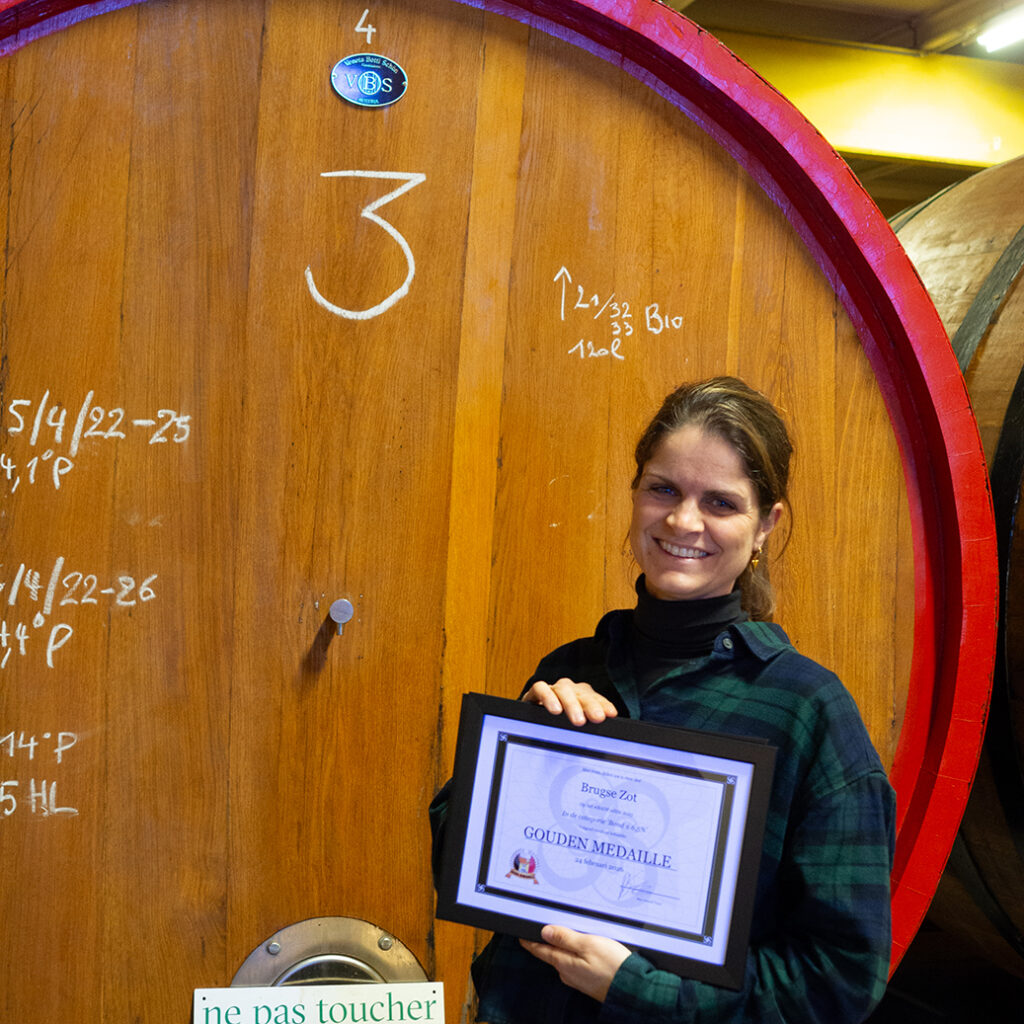 4
Veneta Botti Schio
VBS
3
↑ 21/32 Bio
33
120l
5/4/22-25
4,1°P
/4/22-26
,4°P
14°P
5 HL
Brugse Zot
In de categorie 'Blond ≤ 6,5%'
GOUDEN MEDAILLE
24 februari
ne pas toucher